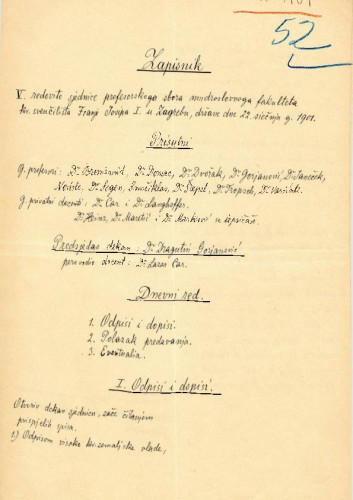 52
Zapisnik
V. redovite sjednice profesorskoga sbora mudroslovnoga fakulteta
kr. sveučilišta Franje Josipa I. u Zagrebu, držane dne 22. siečnja g. 1901.
Prisutni
G. profesori: Dr Domac, Dr Dvořák, Dr Gorjanović, Dr Janeček,
Dr Segen, Smičiklas, Dr Šrepel,
G. privatni docenti: Dr Car i Dr Langhoffer.
Dr Heinz, Dr Maretić i Dr Marković
Predsjedao dekan: Dr Dragutin Gorjanović
perovodio docent: Dr Lazar Car.
Dnevni red.
1. Odpisi i dopisi.
2. Polazak predavanja.
3. Eventualia.
I. Odpisi i dopisi.
Otvoriv dekan sjednicu, zače čitanjem
prispjelih spisa.
1) Odpisom visoke kr. zemaljske vlade,